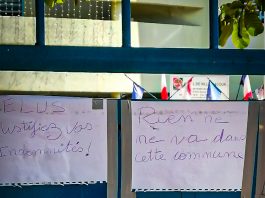 ELUS
Justifiez vos
Indemnités!
Rien ne
ne va dans
cette commune